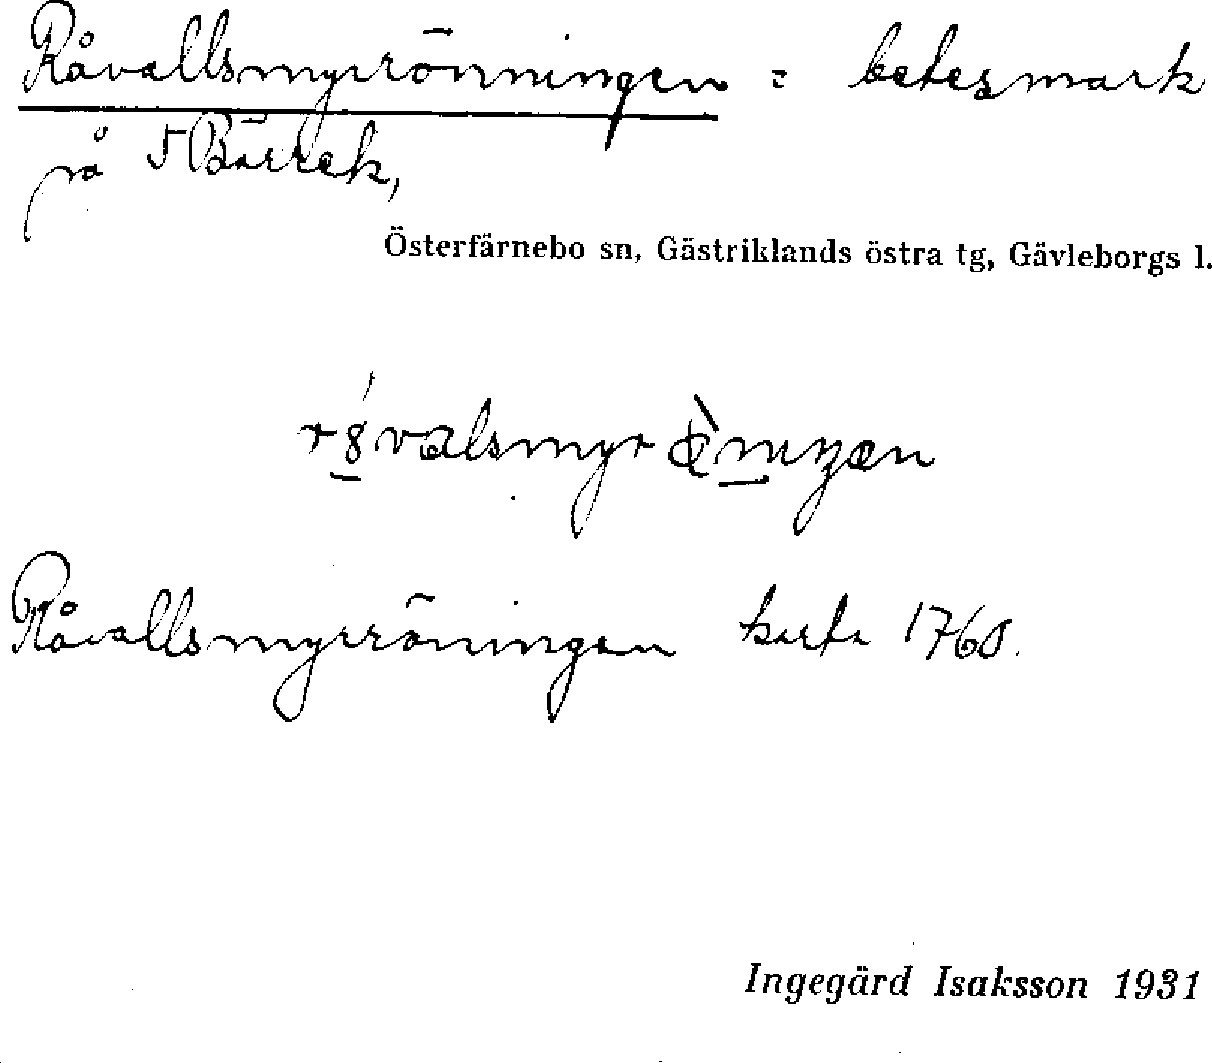 Råvallsmyrrönningen = betesmark
på 5 Bärrek,
Österfärnebo sn, Gästriklands östra tg, Gävleborgs l.
Råvallsmyrröningen karta 1760.
Ingegärd Isaksson 1931